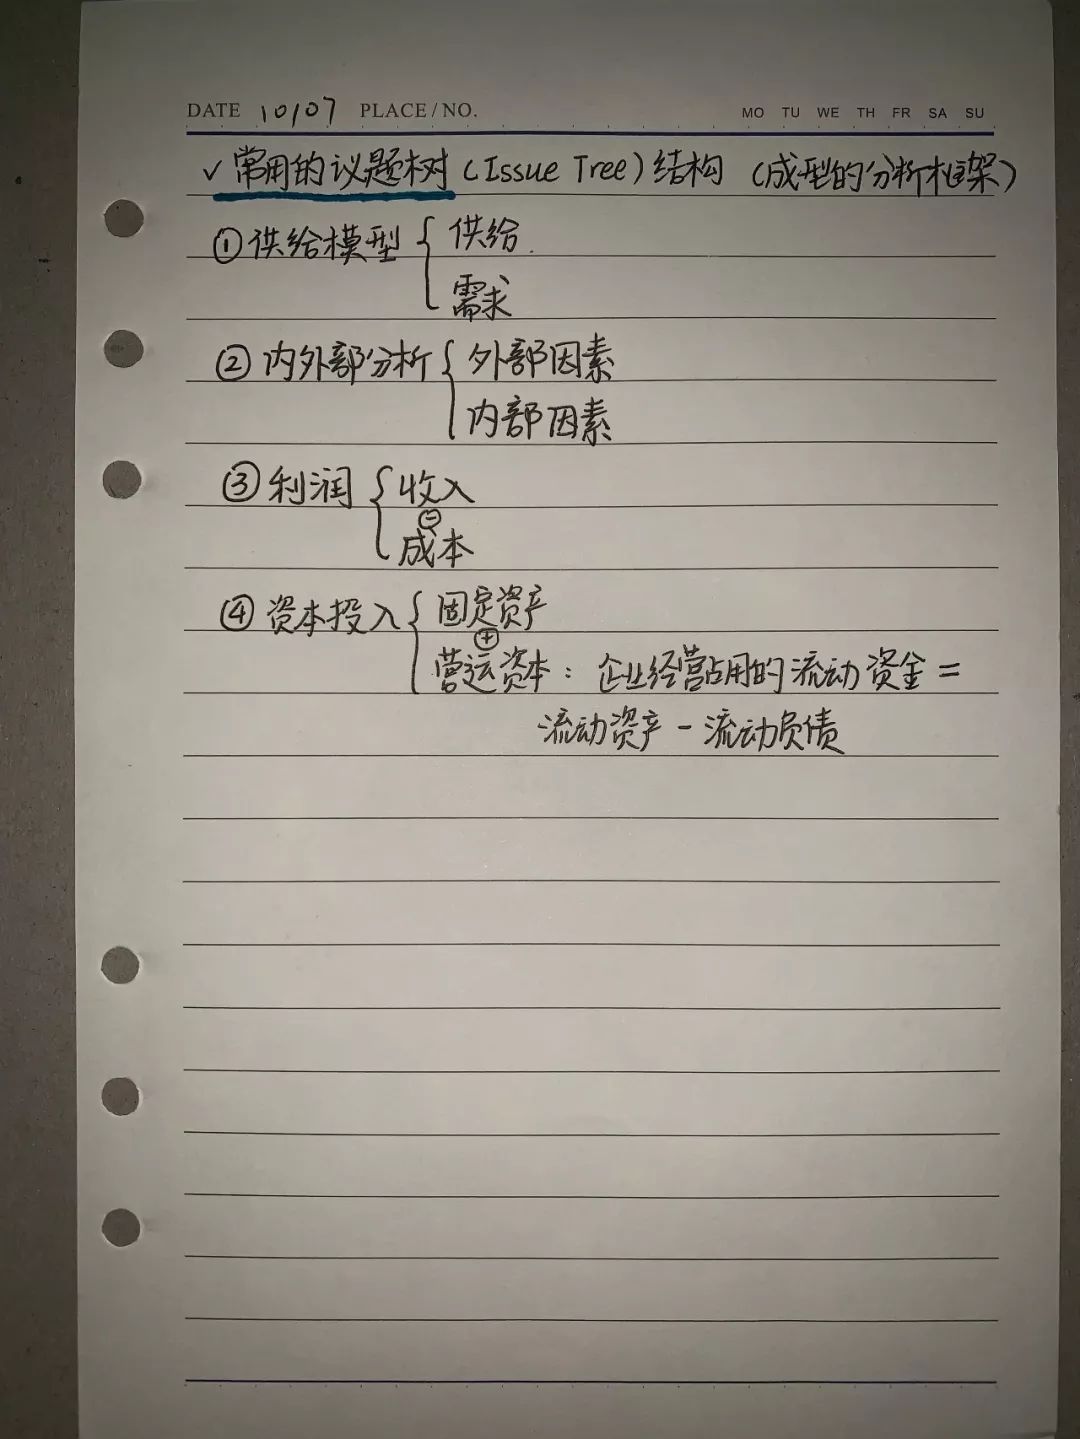 DATE 10/07 PLACE/NO. MO TU WE TH FR SA SU
✓常用的议题树(Issue Tree)结构 (成型的分析框架)
①供给模型{供给
需求
②内外部分析{外部因素
内部因素
③利润{收入
⊖
成本
④资本投入{固定资产
⊕
营运资本:企业经营占用的流动资金=
流动资产-流动负债